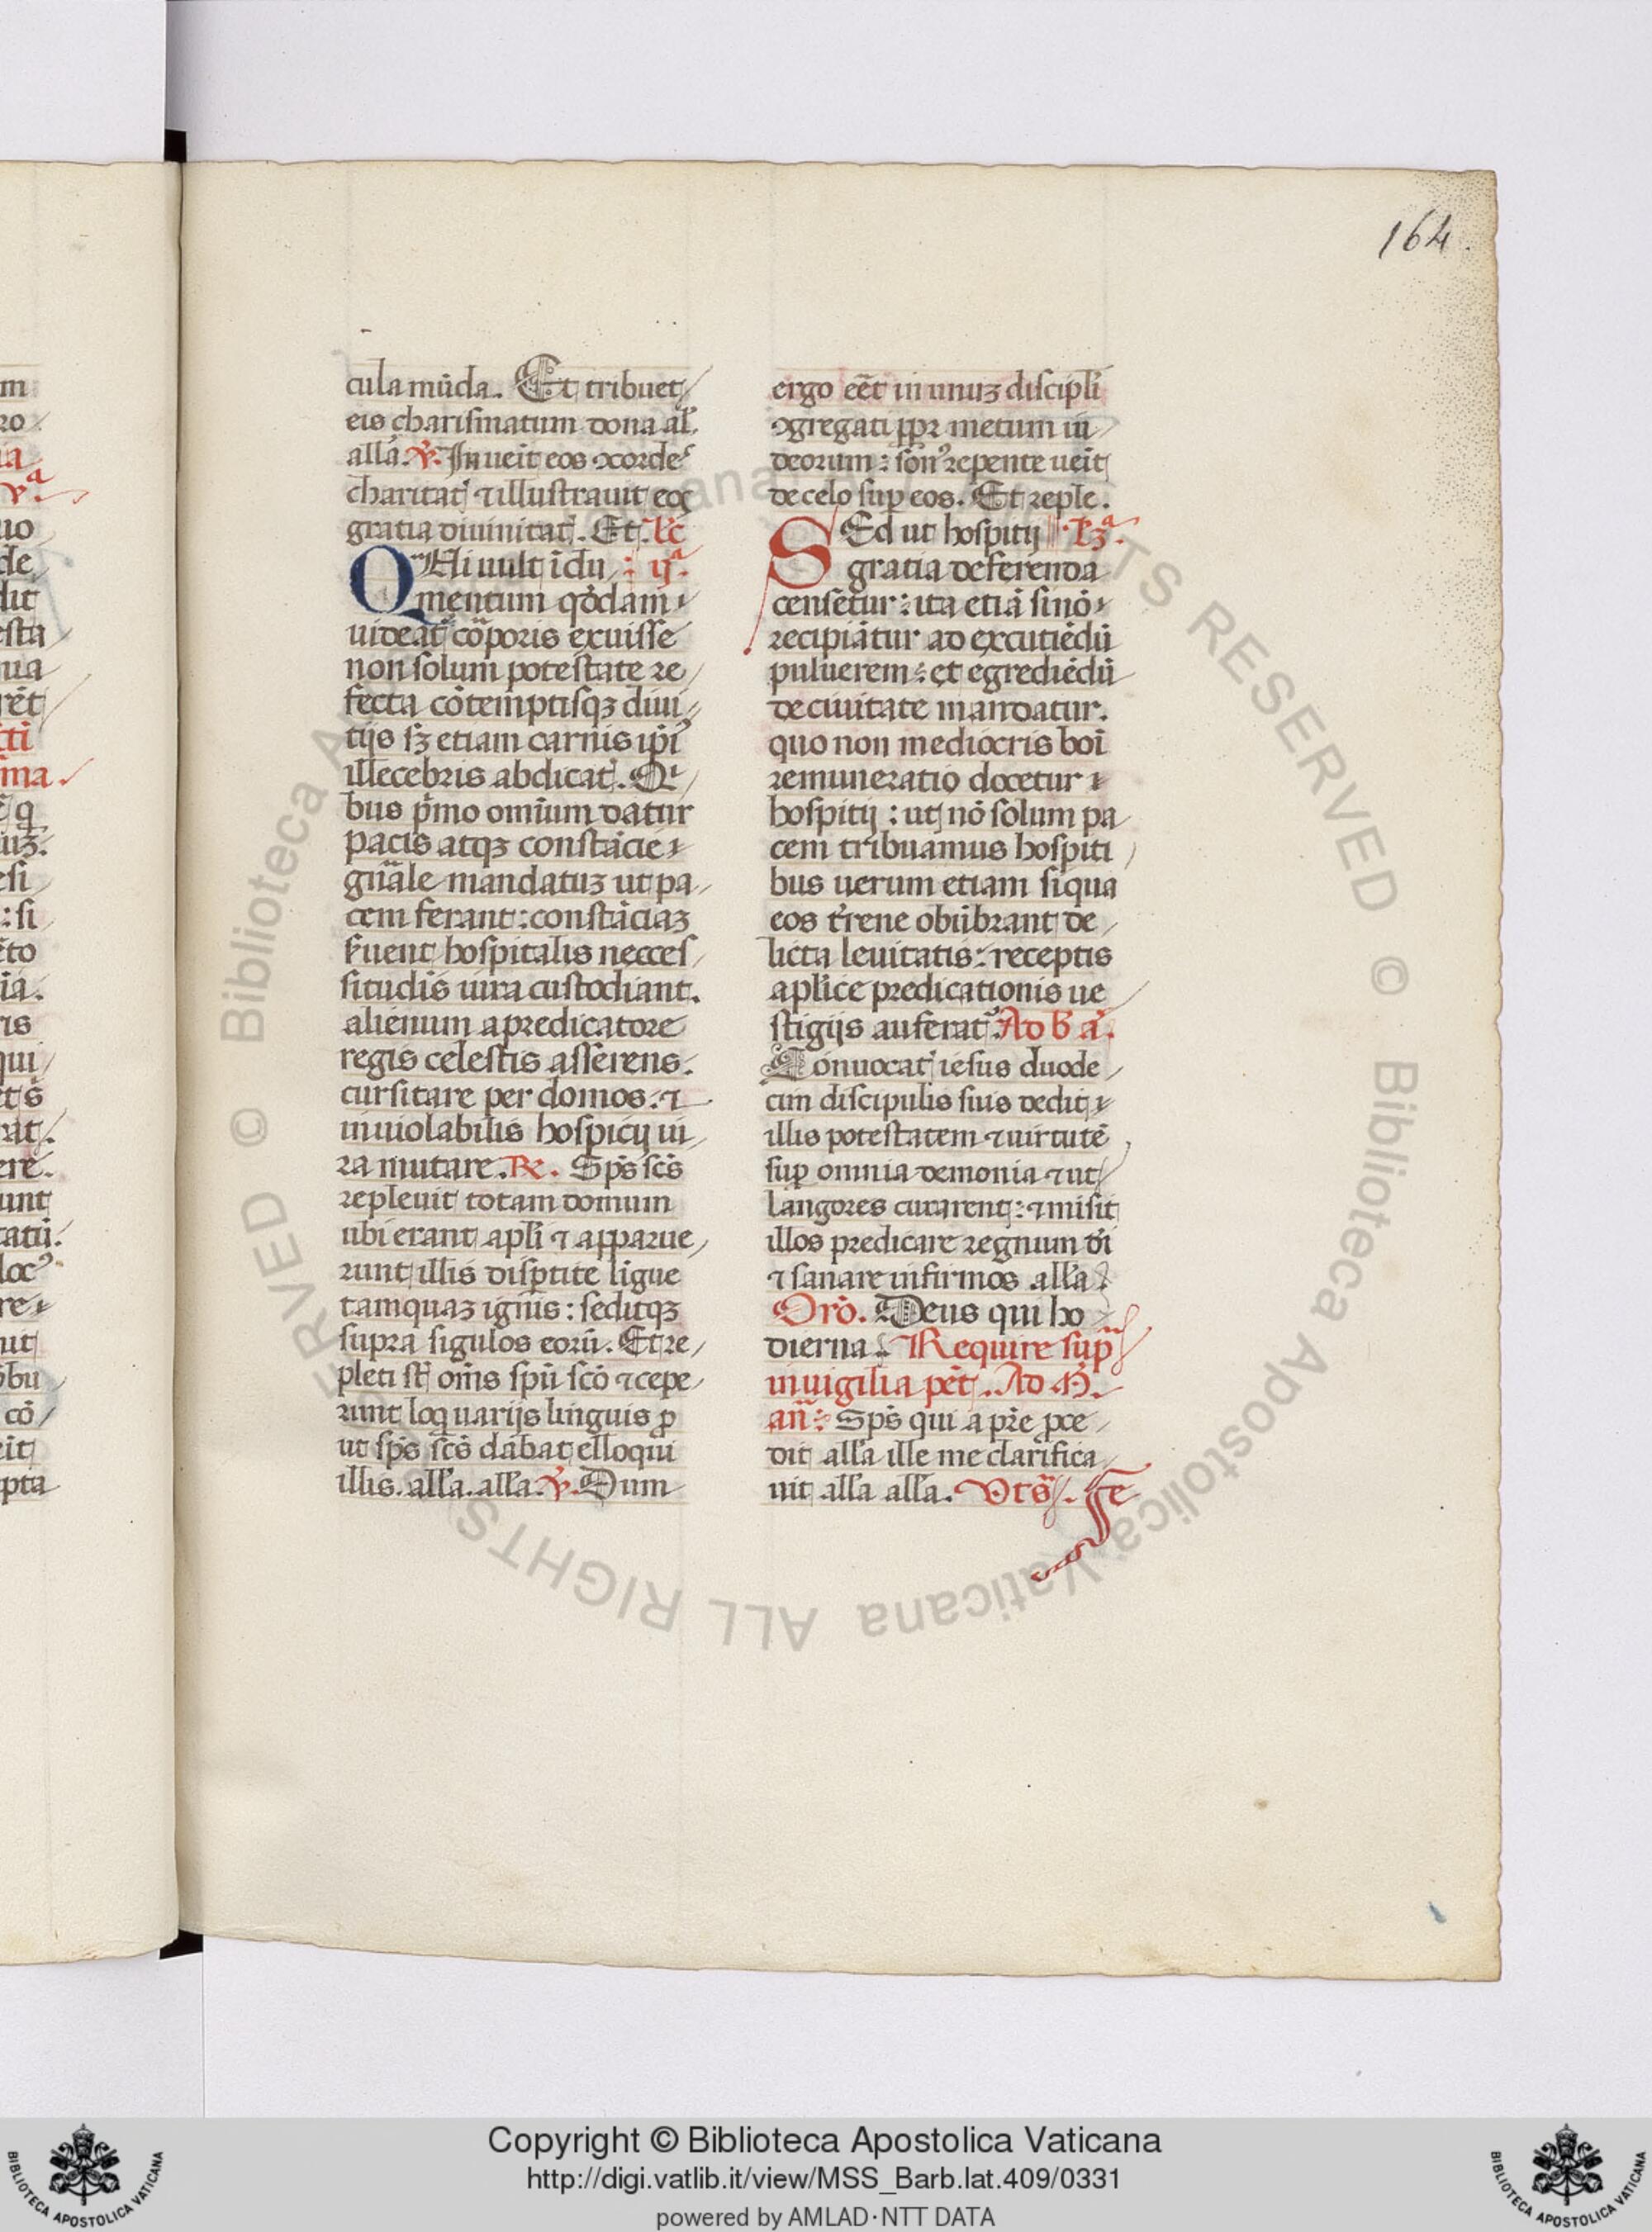 164.
cula mūda. Et tribuet
eis charismatum dona al̄.
allā. ℣. Inueīt eos ɔcordes
charitat̄ ⁊ illustrauit eos
gratia diuinitat̄. Et. lc̄
QUi uult īdu : ijᵃ.
mentum qḋdam
uideat̄ cōporis exuisse
non solum potestate re
fecta cōtemptisqꝫ diui
tijs sꝫ etiam carnis ip̄i
illecebris abdicat̄. Qⁱ
bus p̄mo omīum datur
pacis atqꝫ constācie
gn̄ale mandatuꝫ ut pa
cem ferant: constāciaꝫ
s̄uent hospitalis necces
situdis̄ iura custodiant.
alienum a predicatore
regis celestis asserens.
cursitare per domos. ⁊
inuiolabilis hospicij iu
ra mutare. ℟. Sp̄s sc̄s
repleuit totam domum
ubi erant apl̄i ⁊ apparue
runt illis disꝑtite ligue
tamquaꝫ ignis: seditqꝫ
supra sigulos eorū. Et re
pleti st̄ om̄s spū scō ⁊ cepe
runt loq̄ uarijs linguis ꝓ
ut sp̄s sc̄s dabat elloqui
illis. all̄a. all̄a. ℣. Dum
ergo eēt in unuꝫ discipli
ɔgregati ꝓpꝛ metum iu
deorum: son⁹ repente ueīt
de celo suꝑ eos. Et reple.
SEd ut hospitij
gratia deferenda
censetur: ita etiā si nō
recipiātur ad excutiēdū
puluerem: et egrediēdū
de ciuitate mandatur.
quo non mediocris boī
remuneratio docetur
hospitij: ut nō solum pa
cem tribuamus hospiti
bus uerum etiam si qua
eos t̄rene obūbrant de
licta leuitatis: receptis
apl̄ice predicationis ue
stigijs auferat̄. Ad b̄ a.
Conuocat̄ iesus duode
cim discipulis suis dedit
illis potestatem ⁊ uirtutē
suꝑ omnia demonia ⁊ ut
langores curarent: ⁊ misit
illos predicare regnum dī
⁊ sanare infirmos all̄a
Orō. Deus qui ho
dierna. Require sup̄
in uigilia pēt. Ad M̄.
an̄: Sp̄s qui a pr̄e ꝓce
dit all̄a ille me clarifica
uit all̄a all̄a. Vrs̄. Fe
© Biblioteca Apostolica Vaticana ALL RIGHTS RESERVED
Copyright © Biblioteca Apostolica Vaticana
http://digi.vatlib.it/view/MSS_Barb.lat.409/0331
powered by AMLAD·NTT DATA
BIBLIOTECA APOSTOLICA VATICANA
BIBLIOTECA APOSTOLICA VATICANA